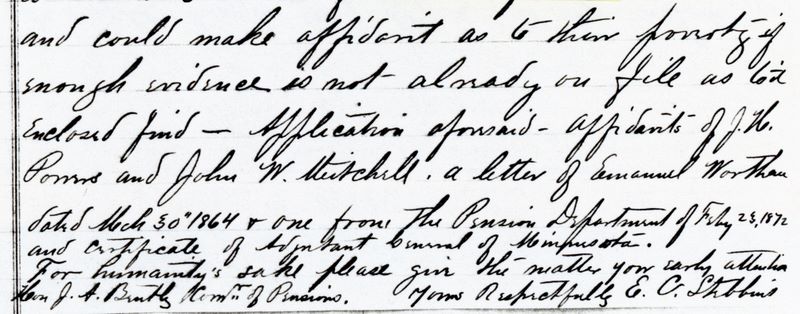 and could make affidavit as to their poverty if
enough evidence is not already on file as to it
Enclosed find — Application aforesaid – affidavits of J. H.
Powers and John W. Mitchell. a letter of Emanuel Wortham
dated Mch 30" 1864 & one from the Pension Department of Feby 23, 1872
and certificate of Adjutant General of Minnesota.
For humanity's sake please give the matter your early attention
Hon J. A. Bentley Com'n of Pensions. Yours Respectfully E. C. Stebbins